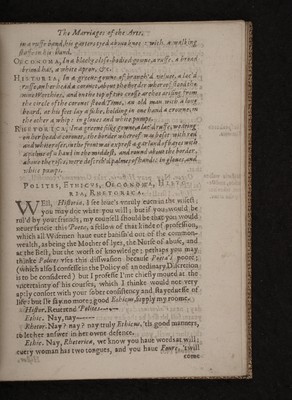 The Marriages of the Arts.
in a ruffe band, his garters tyed aboue knee with, a walking
staffe in his hand.
OECONOMA, In a blacke close-bodied gowne, a ruffe, a broad
brimd hat, a white apron, &c.
HISTORIA, In a greene gowne of branch'd veluet, a lac'd
ruffe, on her head a coronet, about the border whereof stand the
nine Worthies, and on the top of two crosse arches arising from
the circle of the coronet stood Time, an old man with a long
beard, at his feet lay a sithe, holding in one hand a crowne, in
the other a whip: in gloues and white pumps.
RHETORICA, In a gowne, a lac'd ruffe, wearing
on her head a coronet, the border whereof was
and white roses, in the front was exprest a garland of bayes with
a palme of a hand in the middest, and round about the border,
aboue the roses, were describ'd palmes of hands: in gloues, and
white pumps.
POLITES, ETHICVS, OECONOMA, HISTO-
RIA, RHETORICA.
WEll, Historia, I see loue's vnruly euen in the wisest;
you may doe what you will; but if you would be
rul'd by your friends, my counsell should be that you would
neuer fancie this Poeta, a fellow of that kinde of profession,
which all Wisemen haue euer banish'd out of the common-
wealth, as being the Mother of lyes, the Nurse of abuse, and
at the Best, but the worst of knowledge: perhaps you may
thinke Polites vses this disswasion because Poeta's poore;
(which also I confesse in the Policy of an ordinary Discretion
is to be considered) but I professe I'me chiefly moued at the
vncertainty of his courses, which I thinke would not very
aptly consort with your sober constitency and stayednesse of
life: but Ile say no more; good Ethicus, supply my roome.
Histor. Reuerend Polites——
Ethic. Nay, nay——
Rhetor. Nay? nay? nay truly Ethicus, 'tis good manners,
to let her answer in her owne defence.
Ethic. Nay, Rhetorica, we know you haue words at will;
euery woman has two tongues, and you haue Foure, 'twill
come